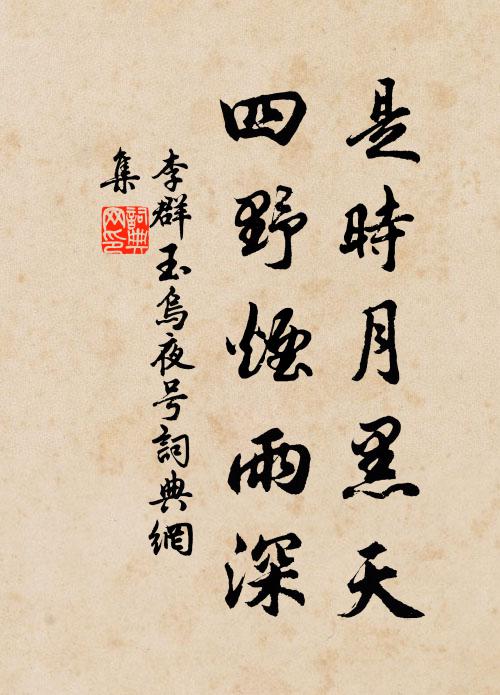 是時月黑天
四野煙雨深
李群玉烏夜号詞典網
集
詞典網印